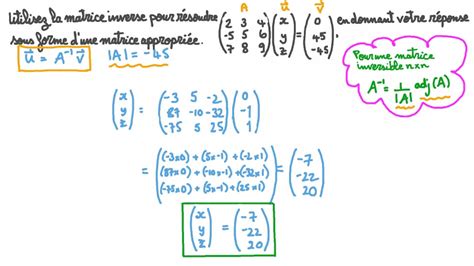 A v⃗
Utilisez la matrice inverse pour résoudre (2 3 4; -5 5 6; 7 8 9)(x; y; z) = (0; 45; -45), en donnant votre réponse
sous forme d'une matrice appropriée.
u⃗ = A⁻¹ v⃗ |A| = -45
Pour une matrice
inversible n×n
A⁻¹ = 1/|A| adj(A)
(x; y; z) = (-3 5 -2; 87 -10 -32; -75 5 25)(0; -1; 1)
= ((-3×0) + (5×-1) + (-2×1); (87×0) + (-10×-1) + (-32×1); (-75×0) + (5×-1) + (25×1)) = (-7; -22; 20)
(x; y; z) = (-7; -22; 20)